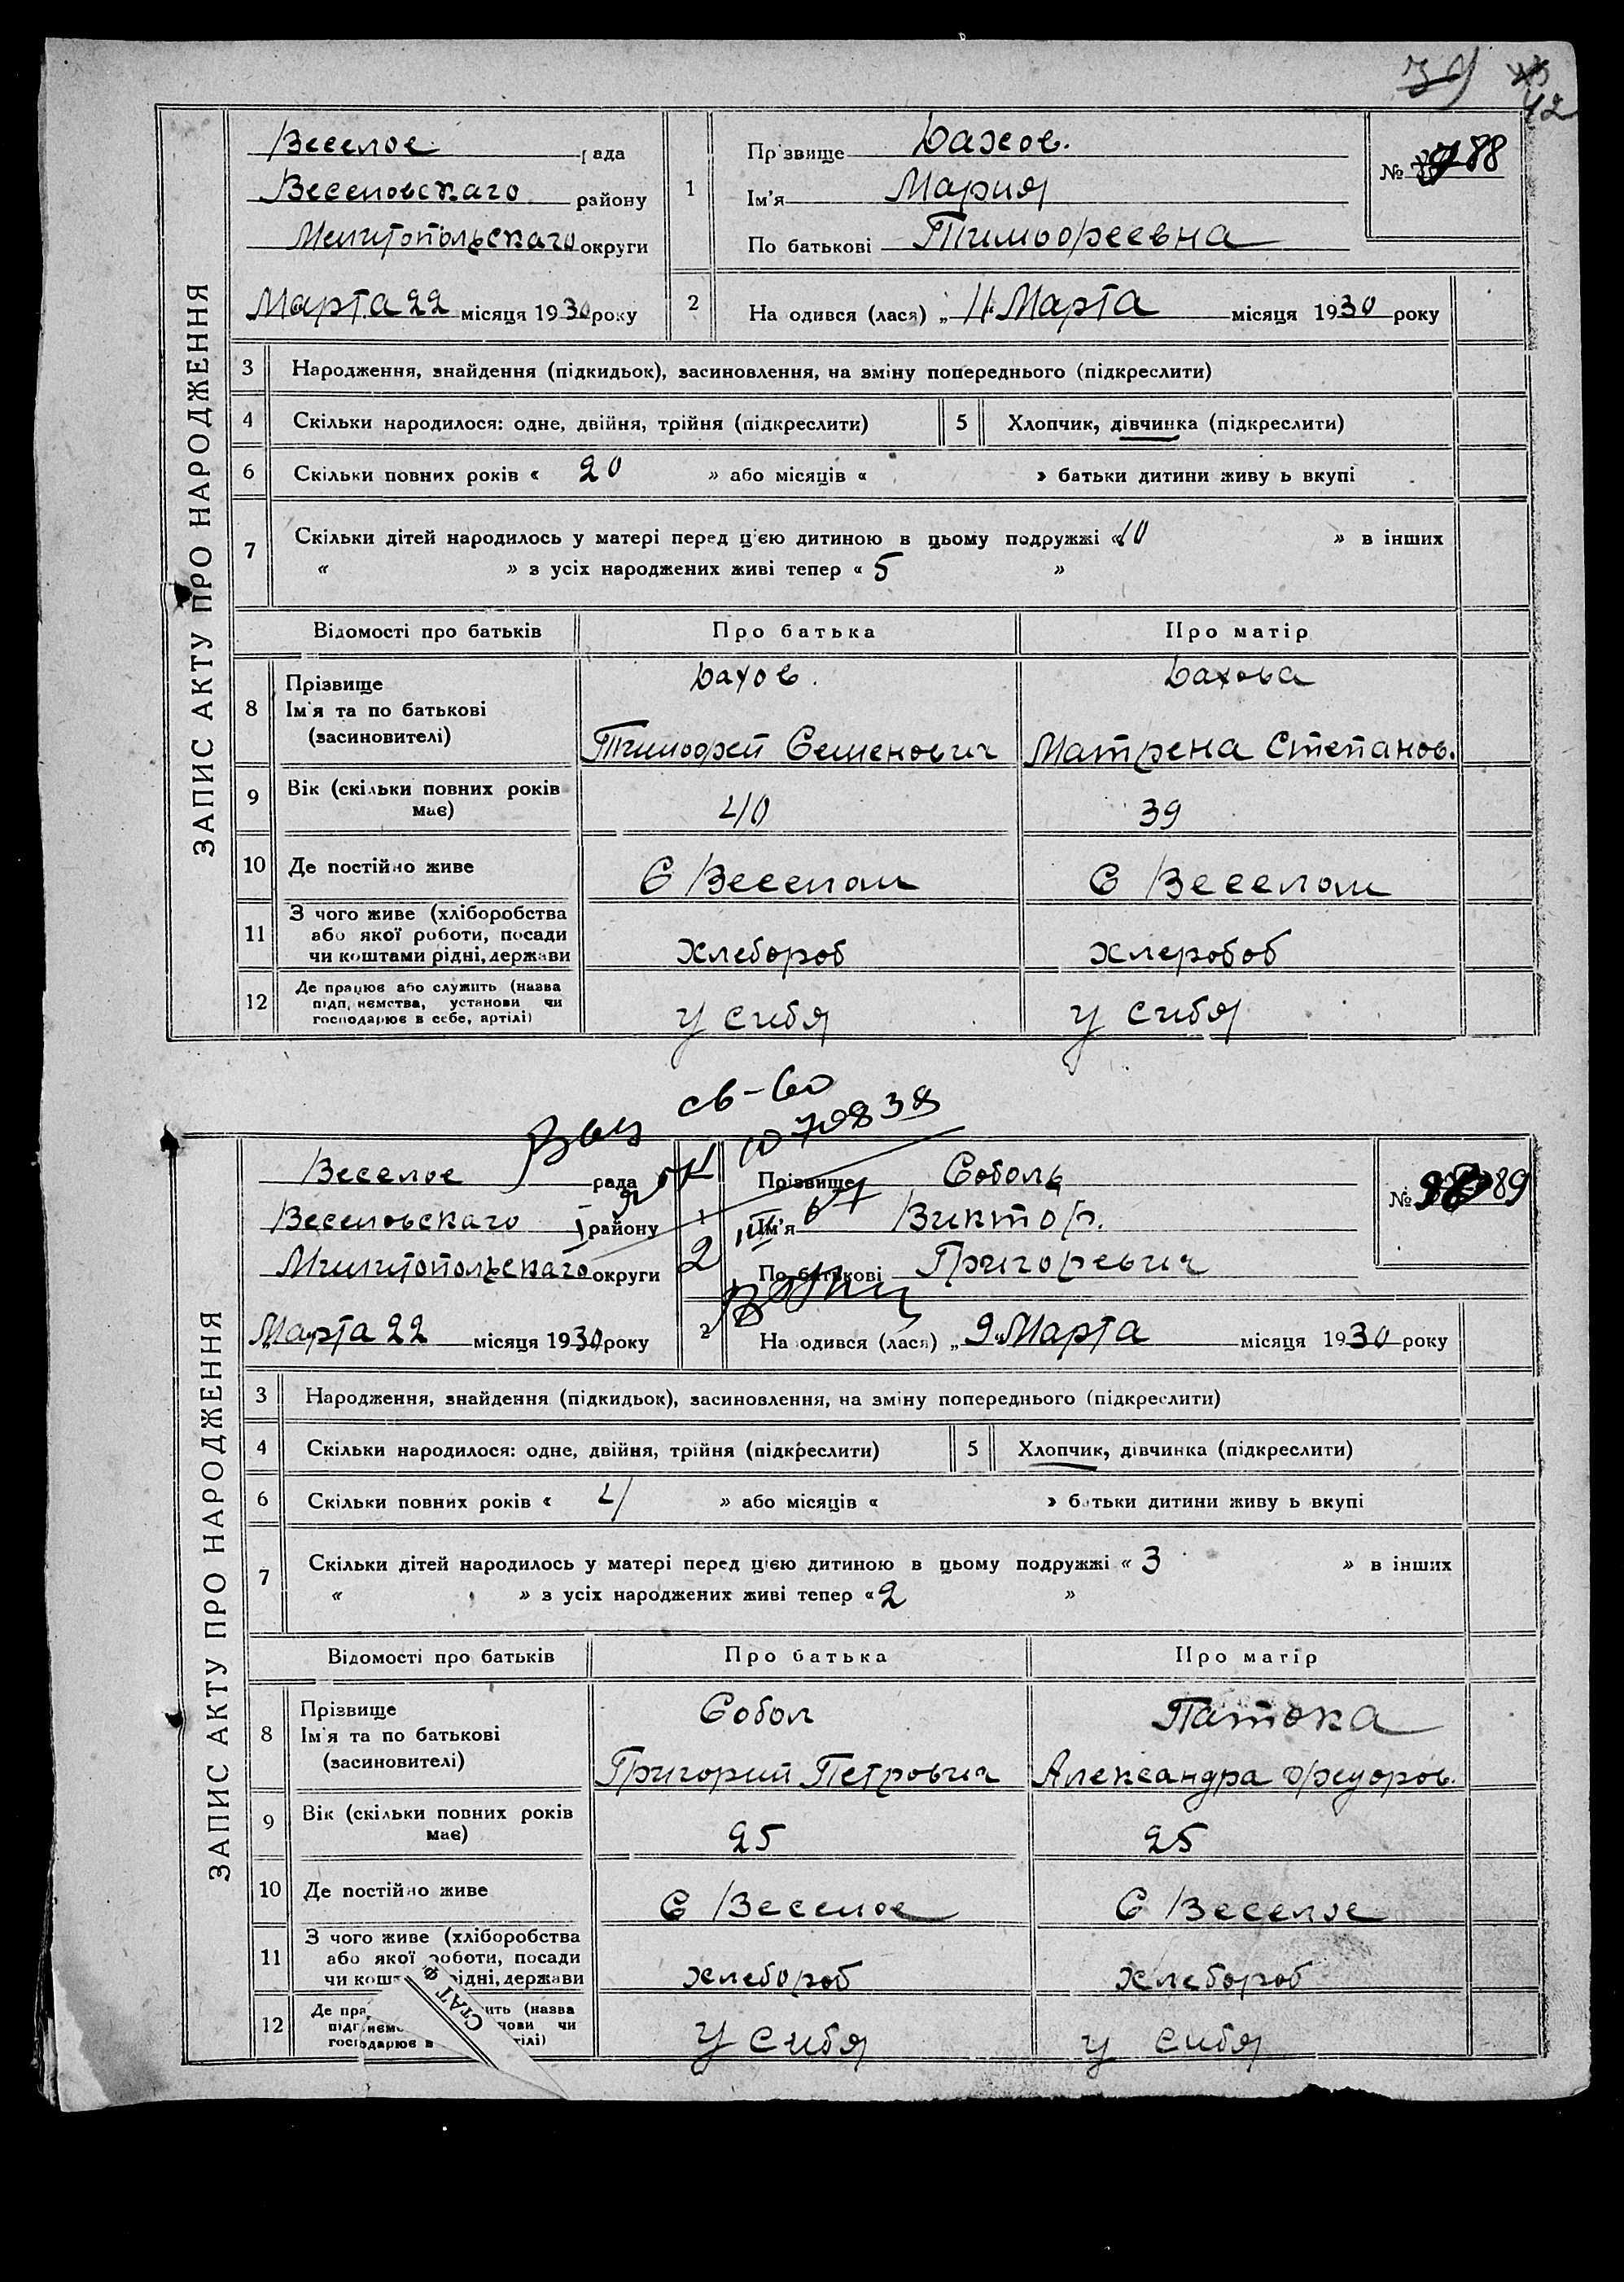 39
42
ЗАПИС АКТУ ПРО НАРОДЖЕННЯ
Веселое рада
Веселовскаго району
Милитопольскаго округи
Марта 22 місяця 1930 року
1
Прізвище Бахов.
Ім'я Мария
По батькові Тимофеевна
№ 88
2 На одився (лася) „ 11 " Марта місяця 1930 року
3 Народження, знайдення (підкидьок), засиновлення, на зміну попереднього (підкреслити)
4 Скільки народилося: одне, двійня, трійня (підкреслити) 5 Хлопчик, дівчинка (підкреслити)
6 Скільки повних років « 20 » або місяців « » батьки дитини живу ь вкупі
7 Скільки дітей народилось у матері перед цією дитиною в цьому подружжі « 10 » в інших
« » з усіх народжених живі тепер « 5 »
Відомості про батьків Про батька Про матір
8 Прізвище
Ім'я та по батькові
(засиновителі)
Бахов. Бахова
Тимофей Семенович Матрена Степанов.
9 Вік (скільки повних років
має)
40 39
10 Де постійно живе С Веселом С Веселом
11 З чого живе (хліборобства
або якої роботи, посади
чи коштами рідні, держави
Хлебороб Хлеробоб
12 Де працює або служить (назва
підп,иємства, установи чи
господарює в себе, артілі)
У сибя У сибя
св-во
10 70838
ЗАПИС АКТУ ПРО НАРОДЖЕННЯ
Веселое рада
Веселовскаго району
Милитопольскаго округи
Марта 22 місяця 1930 року
1
Прізвище Соболь
Ім'я Виктор.
По батькові Григоревич
№ 89
2 На одився (лася) „ 9 " Марта місяця 1930 року
3 Народження, знайдення (підкидьок), засиновлення, на зміну попереднього (підкреслити)
4 Скільки народилося: одне, двійня, трійня (підкреслити) 5 Хлопчик, дівчинка (підкреслити)
6 Скільки повних років « 4 » або місяців « » батьки дитини живу ь вкупі
7 Скільки дітей народилось у матері перед цією дитиною в цьому подружжі « 3 » в інших
« » з усіх народжених живі тепер « 2 »
Відомості про батьків Про батька Про матір
8 Прізвище
Ім'я та по батькові
(засиновителі)
Собол Патока
Григорий Петрович Александра Федоров.
9 Вік (скільки повних років
має)
25 25
10 Де постійно живе С Веселое С Веселое
11 З чого живе (хліборобства
або якої роботи, посади
чи кошт рідні, держави
хлебороб хлебороб
12 Де пра ить (назва
підп иємс нови чи
господарює в тілі)
У сибя у сибя
СТАТ Ф